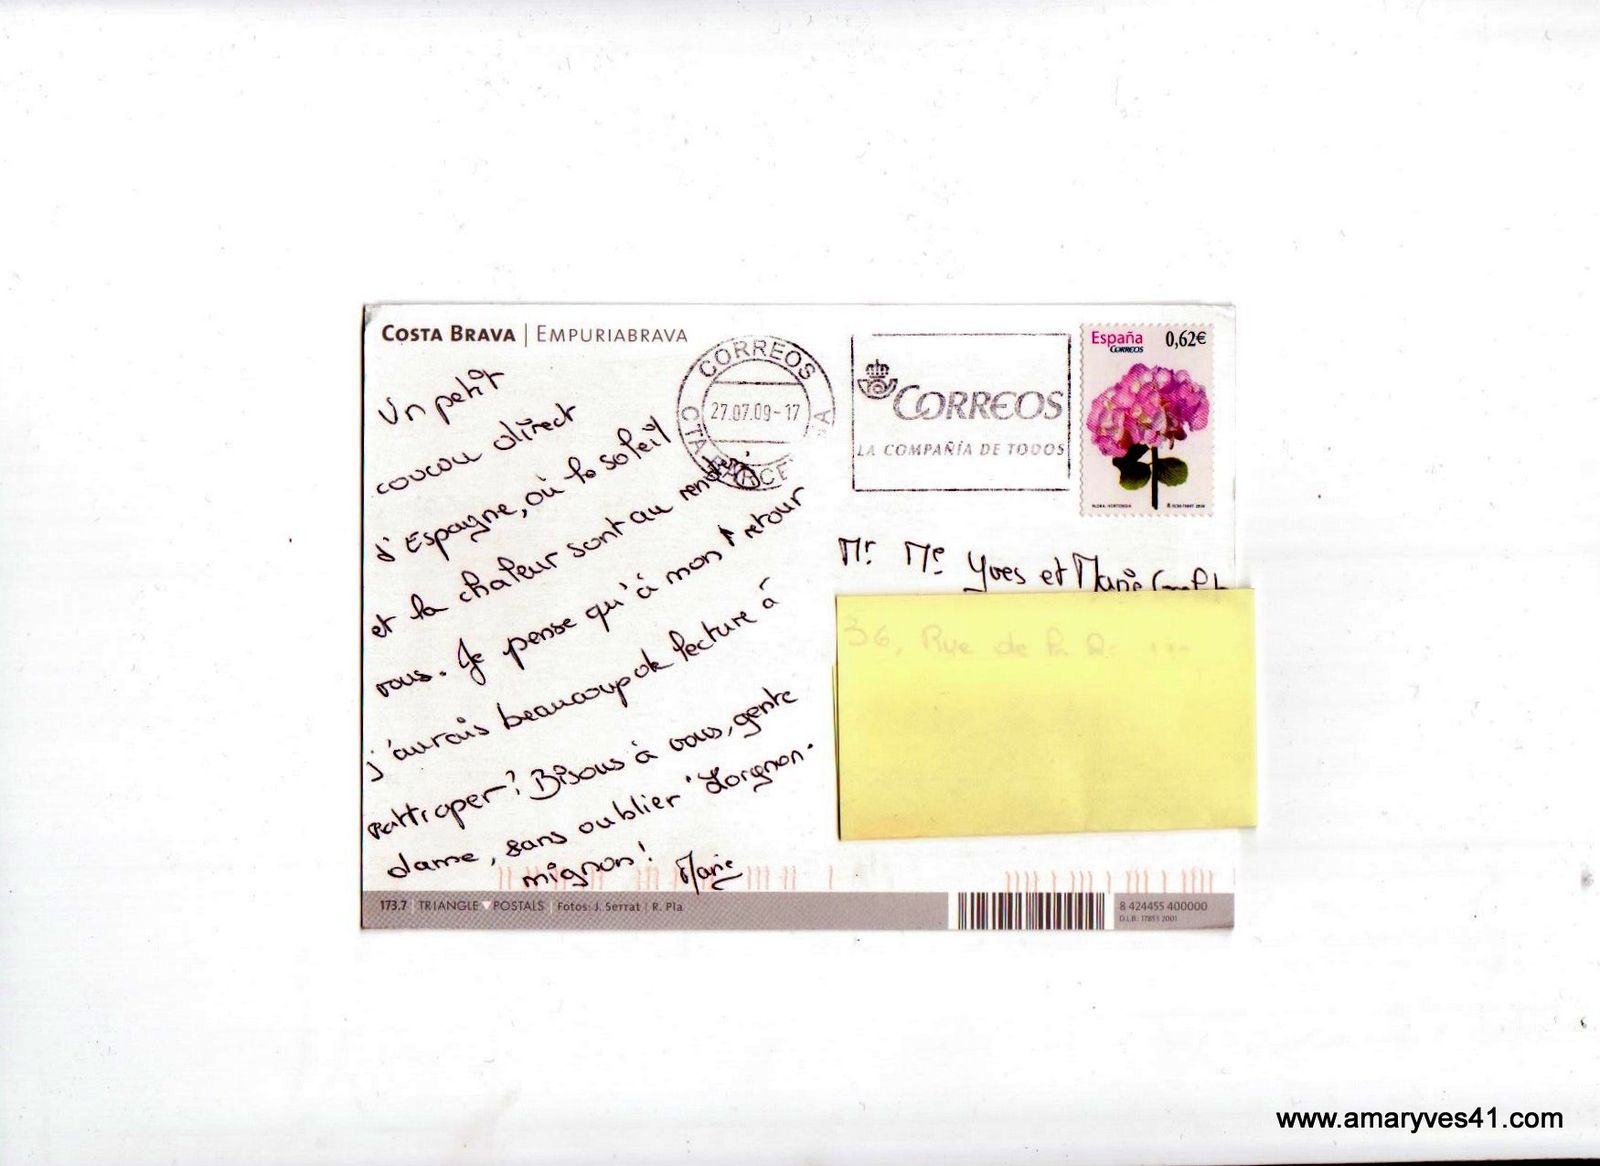 COSTA BRAVA | EMPURIABRAVA
Un petit
coucou direct
d'Espagne, où le soleil
et la chaleur sont au rendez
vous. Je pense qu'à mon retour
j'aurais beaucoup de lecture à
rattraper! Bisous à vous, gente
dame, sans oublier "Lorgnon"
mignon! Marie
CORREOS
27.07.09-17
CTA BARCE
CORREOS
LA COMPAÑÍA DE TODOS
España
CORREOS
0,62€
FLORA. HORTENSIA
Mr Me Yves et Marie
36, Rue de la
173.7 | TRIANGLE ♥ POSTALS | Fotos: J. Serrat | R. Pla
8 424455 400000
D.L.B.: 17853 2001
www.amaryves41.com